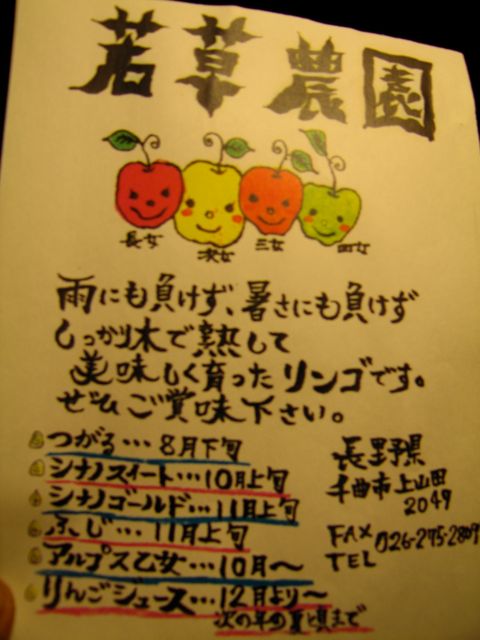 若草農園
長女 次女 三女 四女
雨にも負けず、暑さにも負けず
しっかり木で熟して
美味しく育ったリンゴです。
ぜひご賞味下さい。
つがる…8月下旬
シナノスイート…10月上旬
シナノゴールド…11月上旬
ふじ…11月上旬
アルプス乙女…10月〜
りんごジュース…12月より〜
次の年の夏頃まで
長野県
千曲市上山田
2049
FAX
TEL
026-275-2809